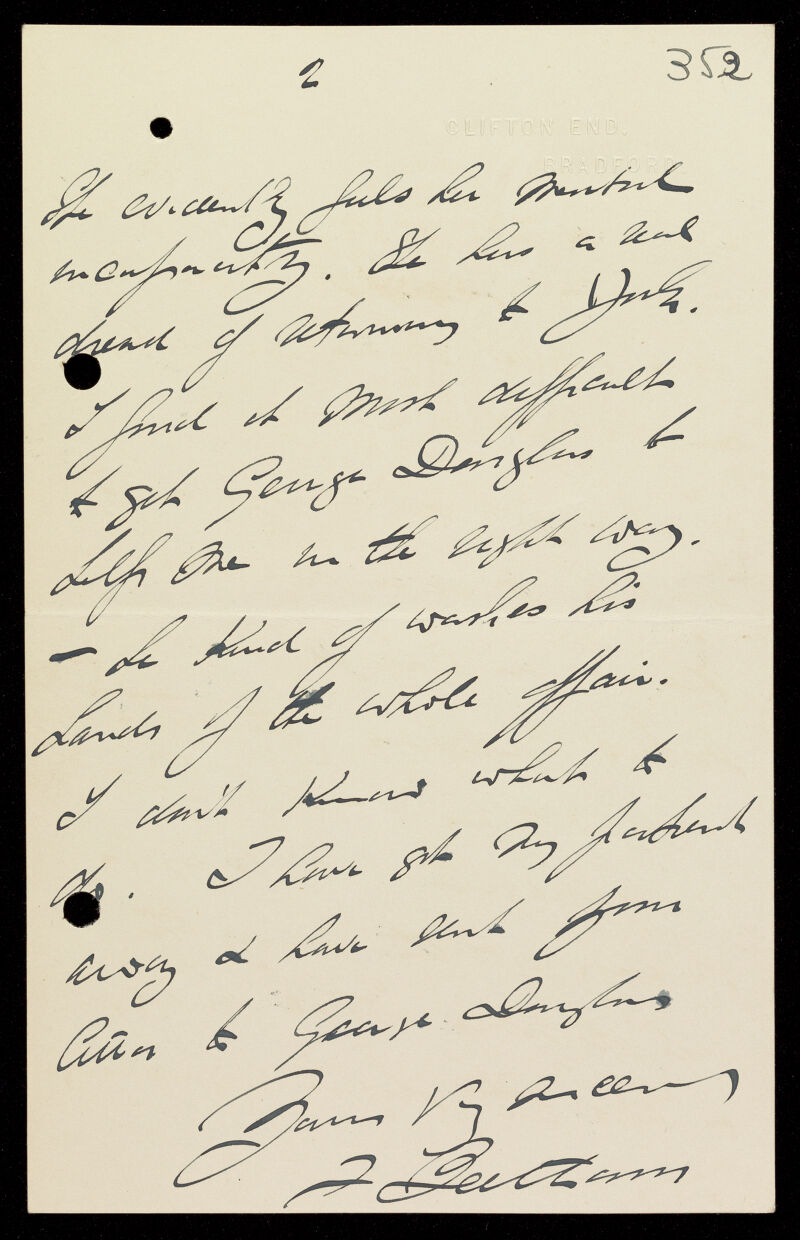 2
352
CLIFTON END.
BRADFORD
She evidently feels her mental
incapacity. She has a real
dread of returning to York.
I find it most difficult
to get George Douglas to
help me in the right way.
- he kind of washes his
hands of the whole affair.
I don't know what to
do. I have got my patient
away & have sent your
letter to George Douglas
Yours Very sincerely